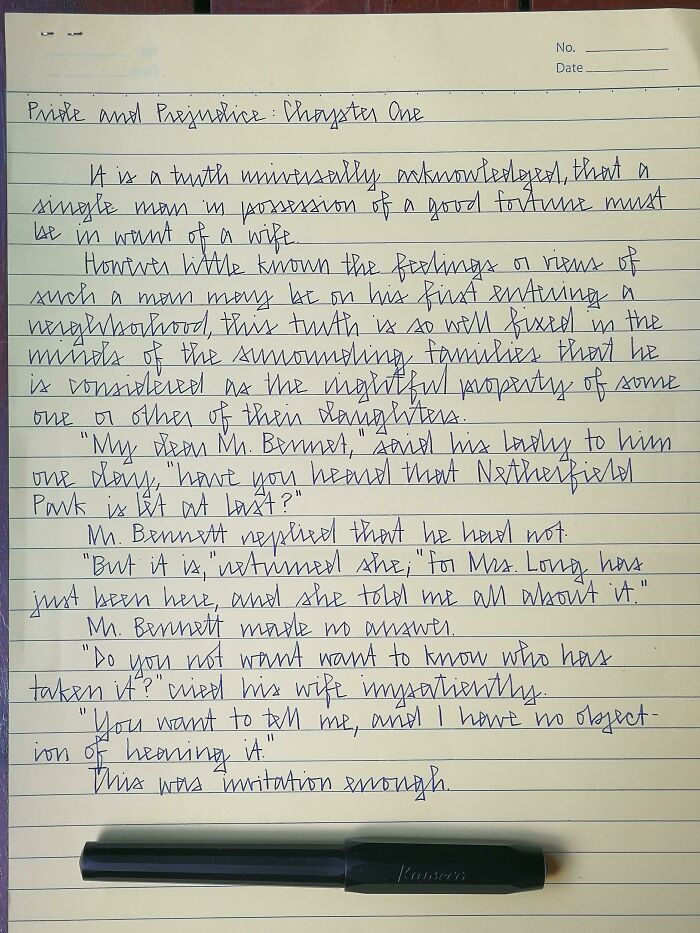 No.
Date
Pride and Prejudice: Chapter One
It is a truth universally acknowledged, that a
single man in possession of a good fortune must
be in want of a wife.
However little known the feelings or views of
such a man may be on his first entering a
neighborhood, this truth is so well fixed in the
minds of the surrounding families that he
is considered as the rightful property of some
one or other of their daughters.
"My dear Mr. Bennet," said his lady to him
one day, "have you heard that Netherfield
Park is let at last?"
Mr. Bennett replied that he had not.
"But it is," returned she, "for Mrs. Long has
just been here, and she told me all about it."
Mr. Bennett made no answer.
"Do you not want want to know who has
taken it?" cried his wife impatiently.
"You want to tell me, and I have no object-
ion of hearing it."
This was invitation enough.
Kaweco